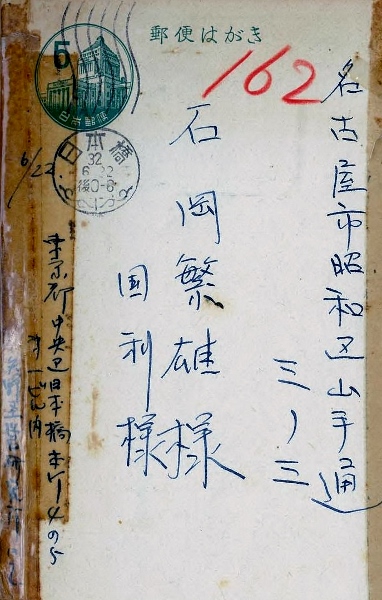 郵便はがき
5
日本郵便
162
日本橋
32
6.22
後0-6
名古屋市昭和区山手通
三ノ三
石岡繁雄様
国利様
6/22
東京都中央区日本橋本町4の5